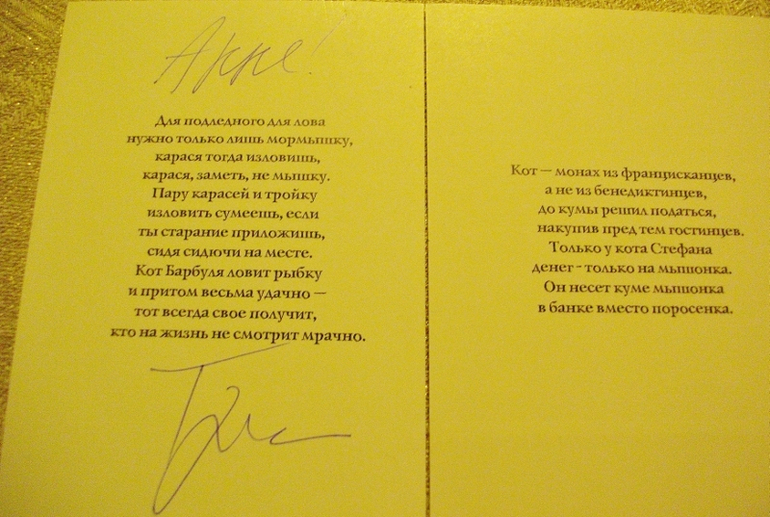 Анне!
Для подледного для лова
нужно только лишь мормышку,
карася тогда изловишь,
карася, заметь, не мышку.
Пару карасей и тройку
изловить сумеешь, если
ты старание приложишь,
сидя сидючи на месте.
Кот Барбуля ловит рыбку
и притом весьма удачно —
тот всегда свое получит,
кто на жизнь не смотрит мрачно.
Кот — монах из францисканцев,
а не из бенедиктинцев,
до кумы решил податься,
накупив пред тем гостинцев.
Только у кота Стефана
денег - только на мышонка.
Он несет куме мышонка
в банке вместо поросенка.